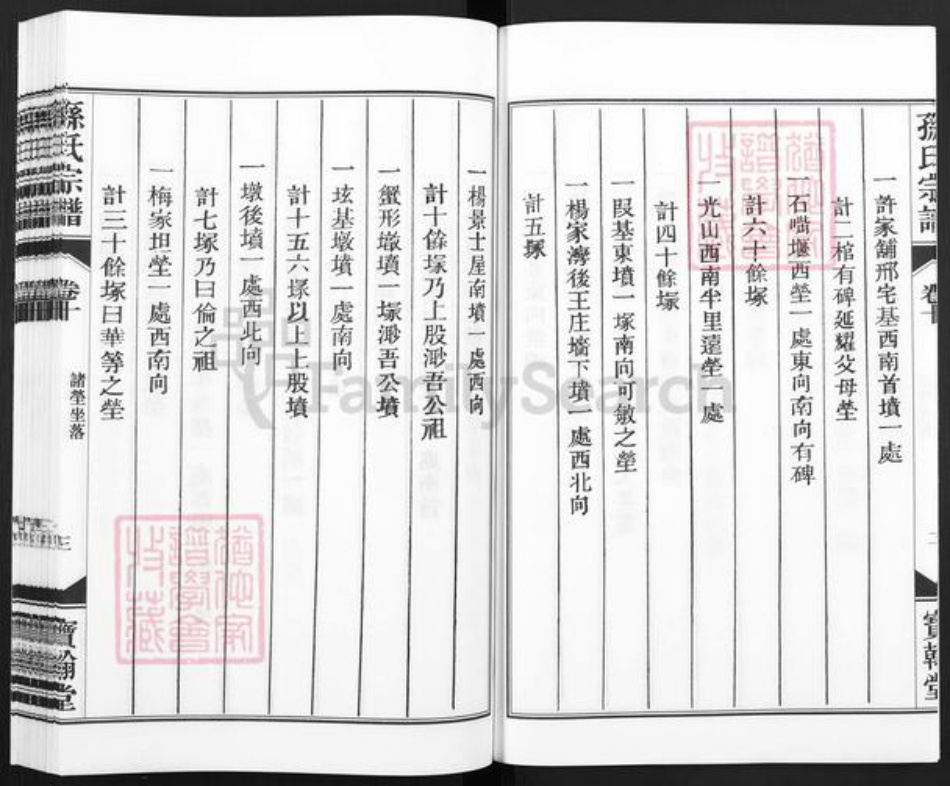 孫氏宗譜
卷十
二
寶翰堂
一許家舖邢宅基西南首墳一處
計二棺有碑延耀父母塋
一石嘴堰西塋一處東向南向有碑
計六十餘塚
一光山西南半里遠塋一處
計四十餘塚
一段基東墳一塚南向可敏之塋
一楊家灣後王庄墻下墳一處西北向
計五塚
一楊景士屋南墳一處西向
計十餘塚乃上股渺吾公祖
一蟹形墩墳一塚渺吾公墳
一坫基墩墳一處南向
計十五六塚以上上股墳
一墩後墳一處西北向
計七塚乃曰倫之祖
一梅家坦塋一處西南向
計三十餘塚曰華等之塋
孫氏宗譜
卷十
諸塋坐落
三
寶翰堂
FamilySearch